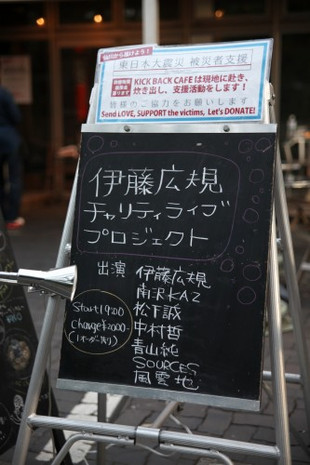 仙川から届けよう！
東日本大震災 被災者支援
KICK BACK CAFEは現地に赴き、
炊き出し、支援活動をします！
皆様のご協力をお願いします
Send LOVE, SUPPORT the victims, Let's DONATE!
伊藤広規
チャリティライブ
プロジェクト
出演 伊藤広規
南沢KAZ
松下誠
中村哲
青山純
SOURCES
風雲地
Start 19:00
Charge ¥2000
(1オーダー制)